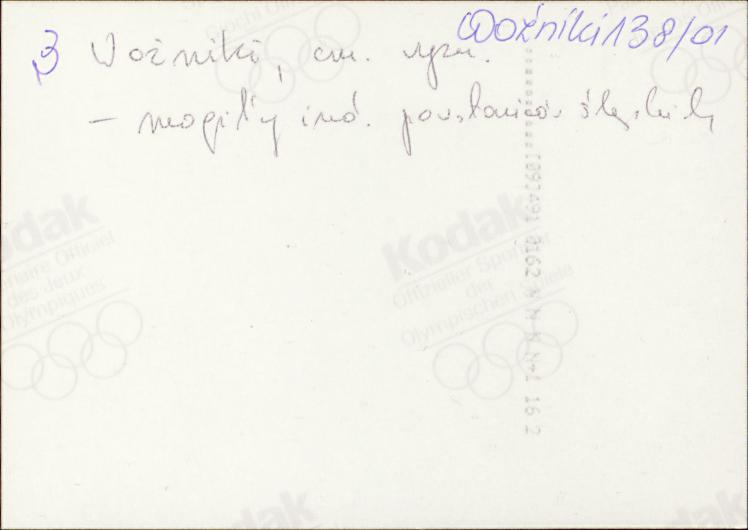 Woźniki 138/01
3 Woźniki, cm. rzym.
— mogiły ind. powstańców śląskich
Kodak
Offizieller Sponsor
der
Olympischen Spiele
Kodak
Partenaire Officiel
des Jeux
Olympiques
Kodak